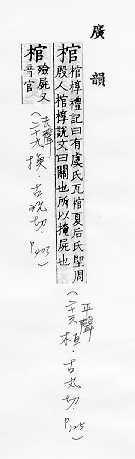 廣韻
棺
棺椁禮記曰有虞氏瓦棺夏后氏堲周
殷人棺椁說文曰關也所以掩屍也
(平聲
二十六桓·古丸切. P125)
棺
殮屍又
音官
(去聲
二十九換·古玩切. P403)